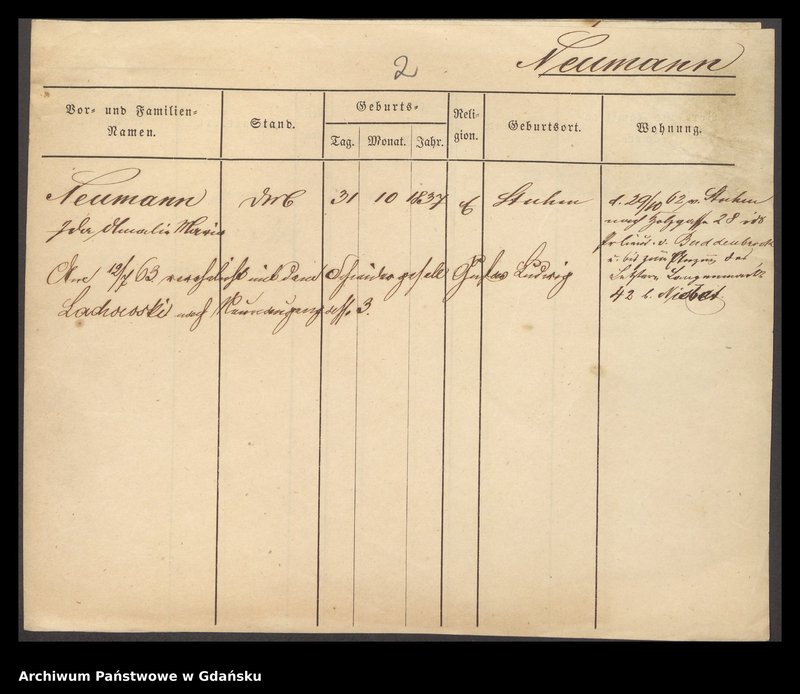 2
Neumann
Vor- und Familien-Namen.
Stand.
Geburts-
Tag.
Monat.
Jahr.
Reli-gion.
Geburtsort.
Wohnung.
Neumann
Ida Amalie Maria
31
10
1837
E
Stuhm
d. 29/10 62 v. Stuhm
nach Holzgasse 28
v. Buddenbrock
u. bis zum der
Letztern Langenmarkt
42 b.
12/7 63 verehelicht mit dem Schneidergesell Gustav Ludwig
Lachowski nach Neunaugengasse 3.
Archiwum Państwowe w Gdańsku